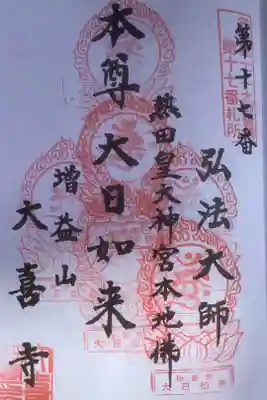 第十七番
弘法大師
熱田皇大神宮本地佛
本尊大日如来
増益山
大喜寺
第十七番札所